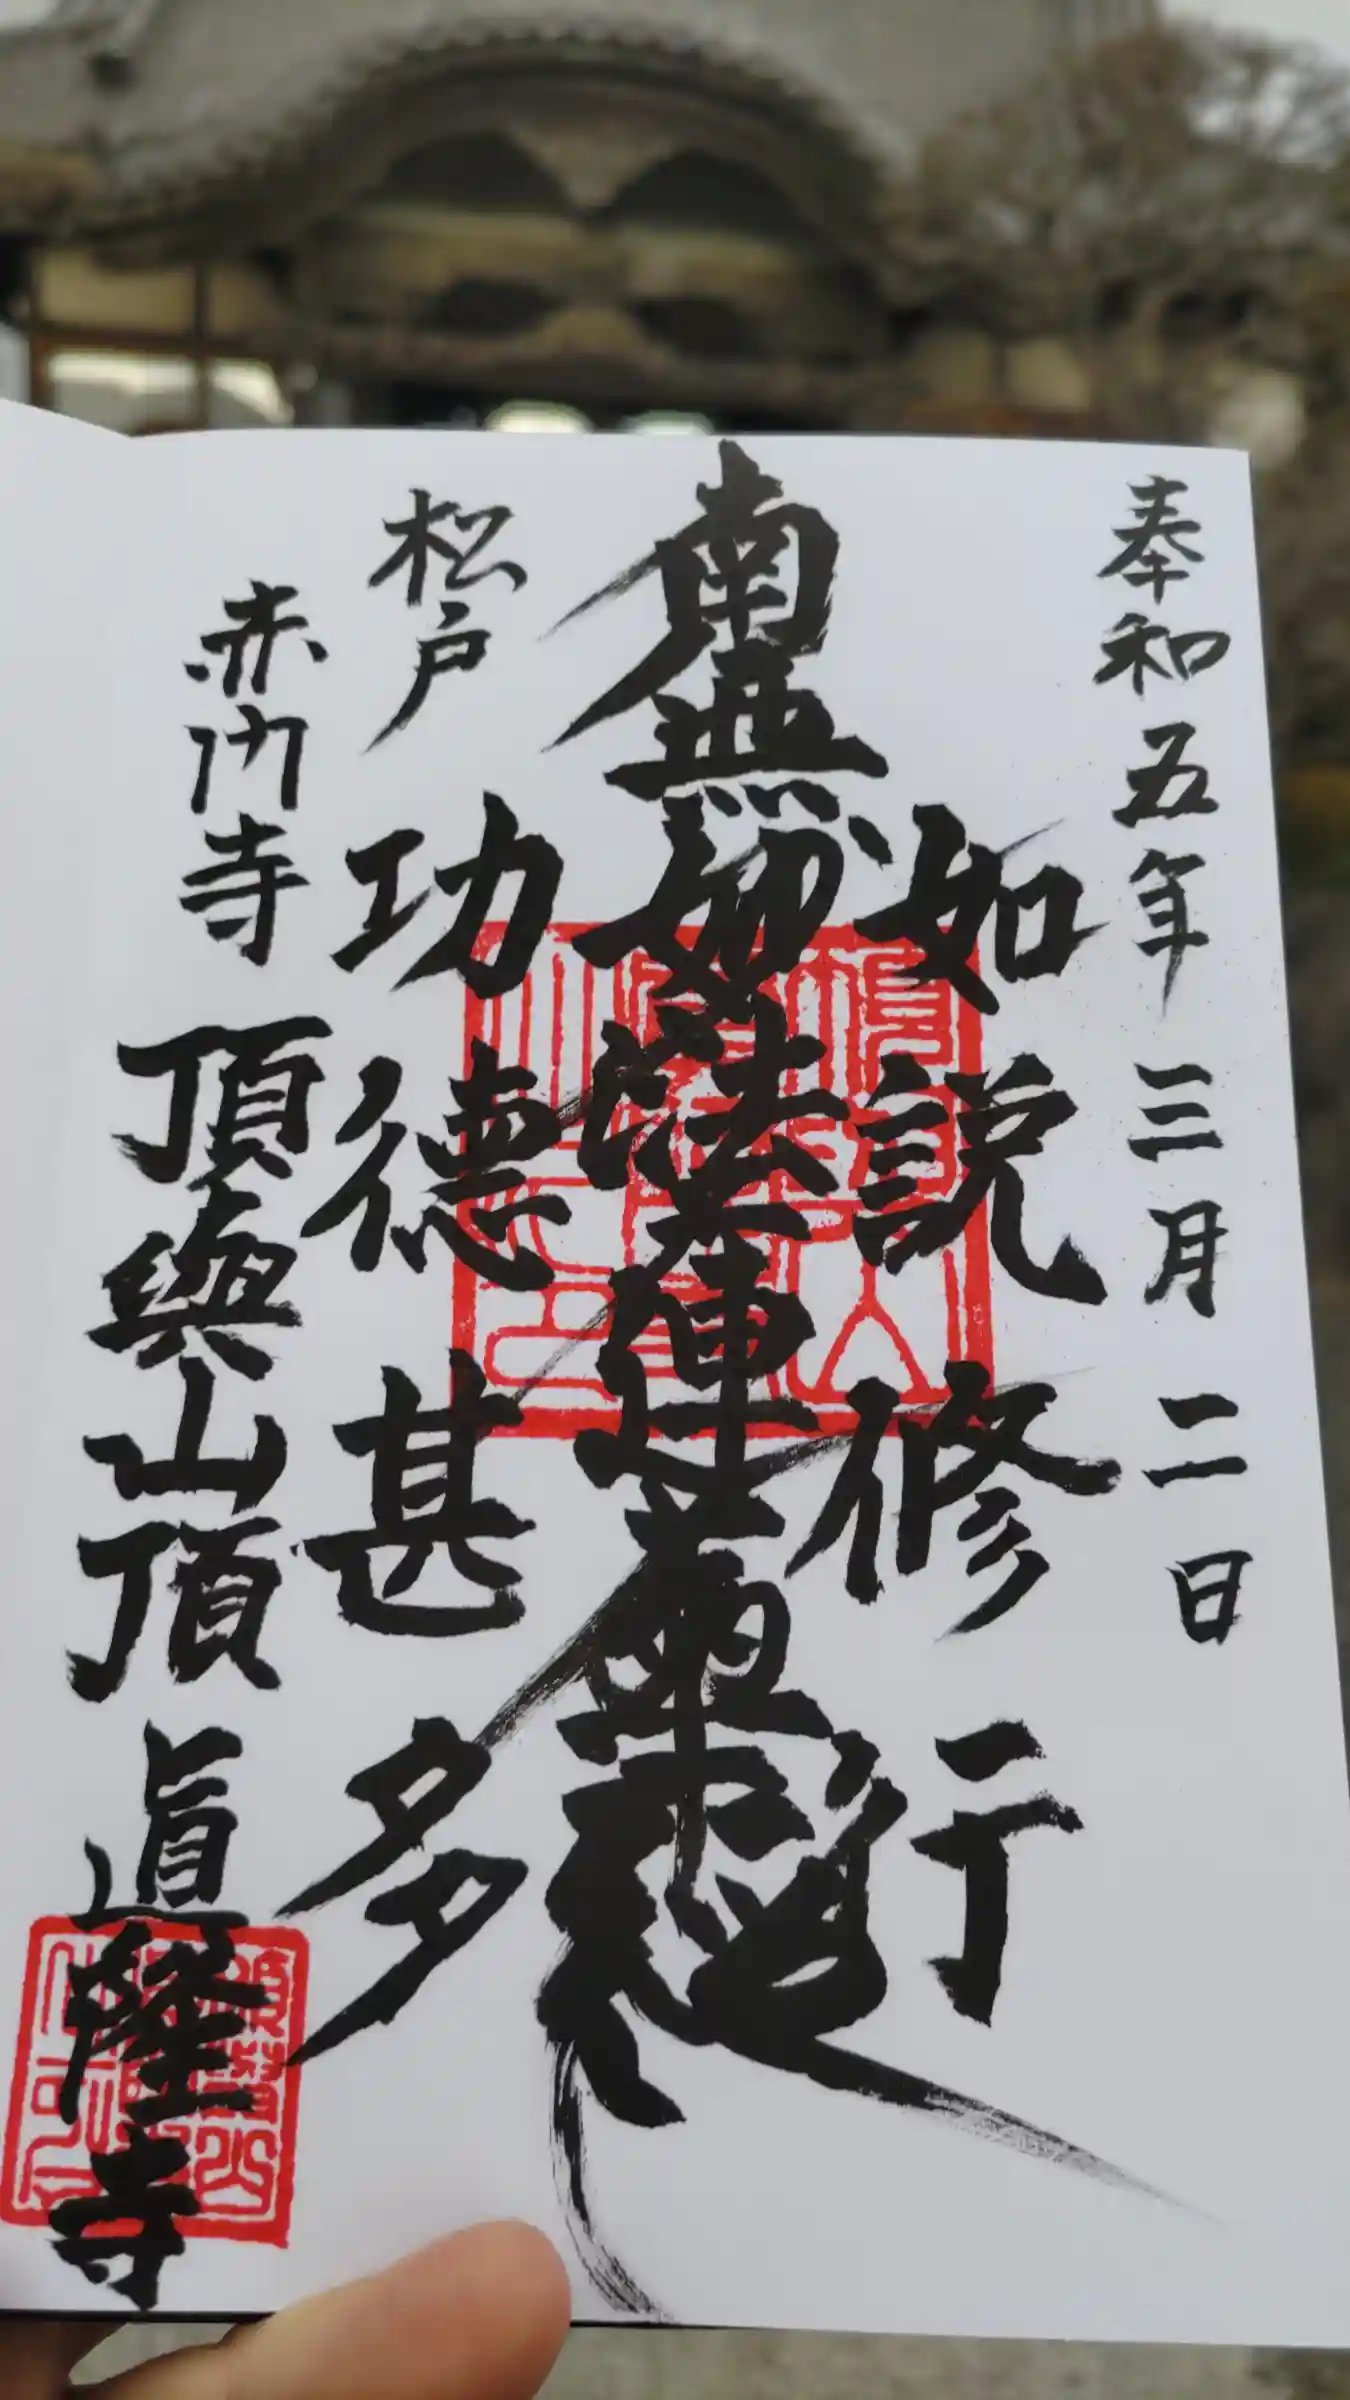 奉和五年三月二日
如説修行
南無妙法蓮華経
功徳甚多
松戸
赤門寺
山頂
隆寺